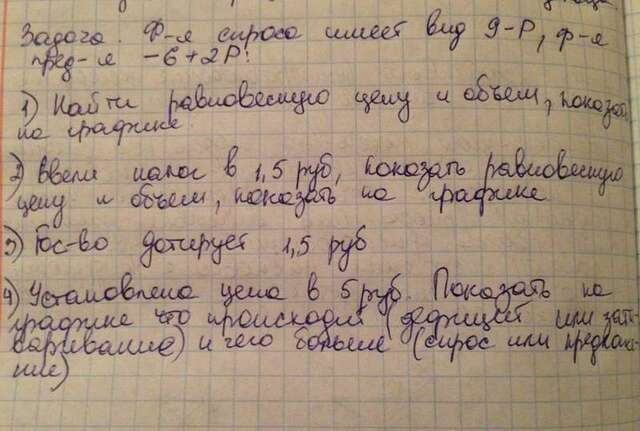 Задача. Ф-я спроса имеет вид 9-P, ф-я
пред-я -6+2P.
1) Найти равновесную цену и объем, показать
на графике
2) Ввели налог в 1,5 руб, показать равновесную
цену и объем, показать на графике
3) Гос-во дотирует 1,5 руб
4) Установлена цена в 5 руб. Показать на
графике что происходит (дефицит или зато-
варивание) и чего больше (спрос или предложе-
ние)